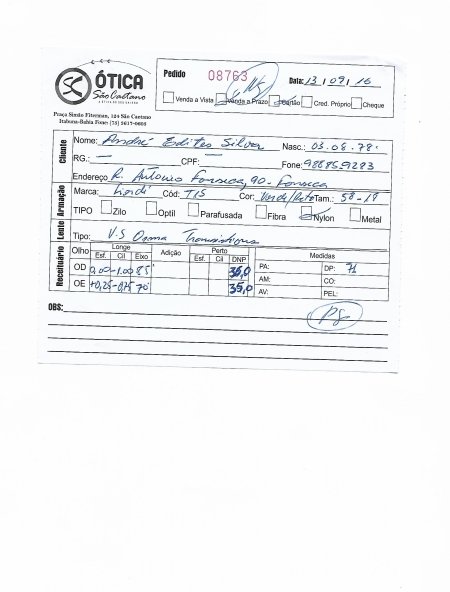 ÓTICA
São Caetano
A ÓTICA DO SEU OLHAR
Praça Simão Fiterman, 124 São Caetano
Itabuna-Bahia Fone: (73) 3617-0605
Pedido 08763 Data: 13, 09, 16
Venda a Vista Venda a Prazo Cartão Cred. Próprio Cheque
Cliente
Nome: André Edites Silver Nasc.: 03.08.78.
RG.: — CPF: — Fone:
Endereço R. Antonio Fonseca, 90 - Fonseca
Armação
Marca: Cód: T15 Cor: Verde/Preto Tam.: 58-19
TIPO Zilo Optil Parafusada Fibra Nylon Metal
Lente
Tipo: V.S Transitions
Receituário
Olho Longe Adição Perto Medidas
Esf. Cil Eixo Esf. Cil DNP
OD 0,00 -1.00 85° 36,0 PA: DP: 71
OE +0,25 -0,75 70° 35,0 AM: CO:
AV: PEL:
OBS:
Pg